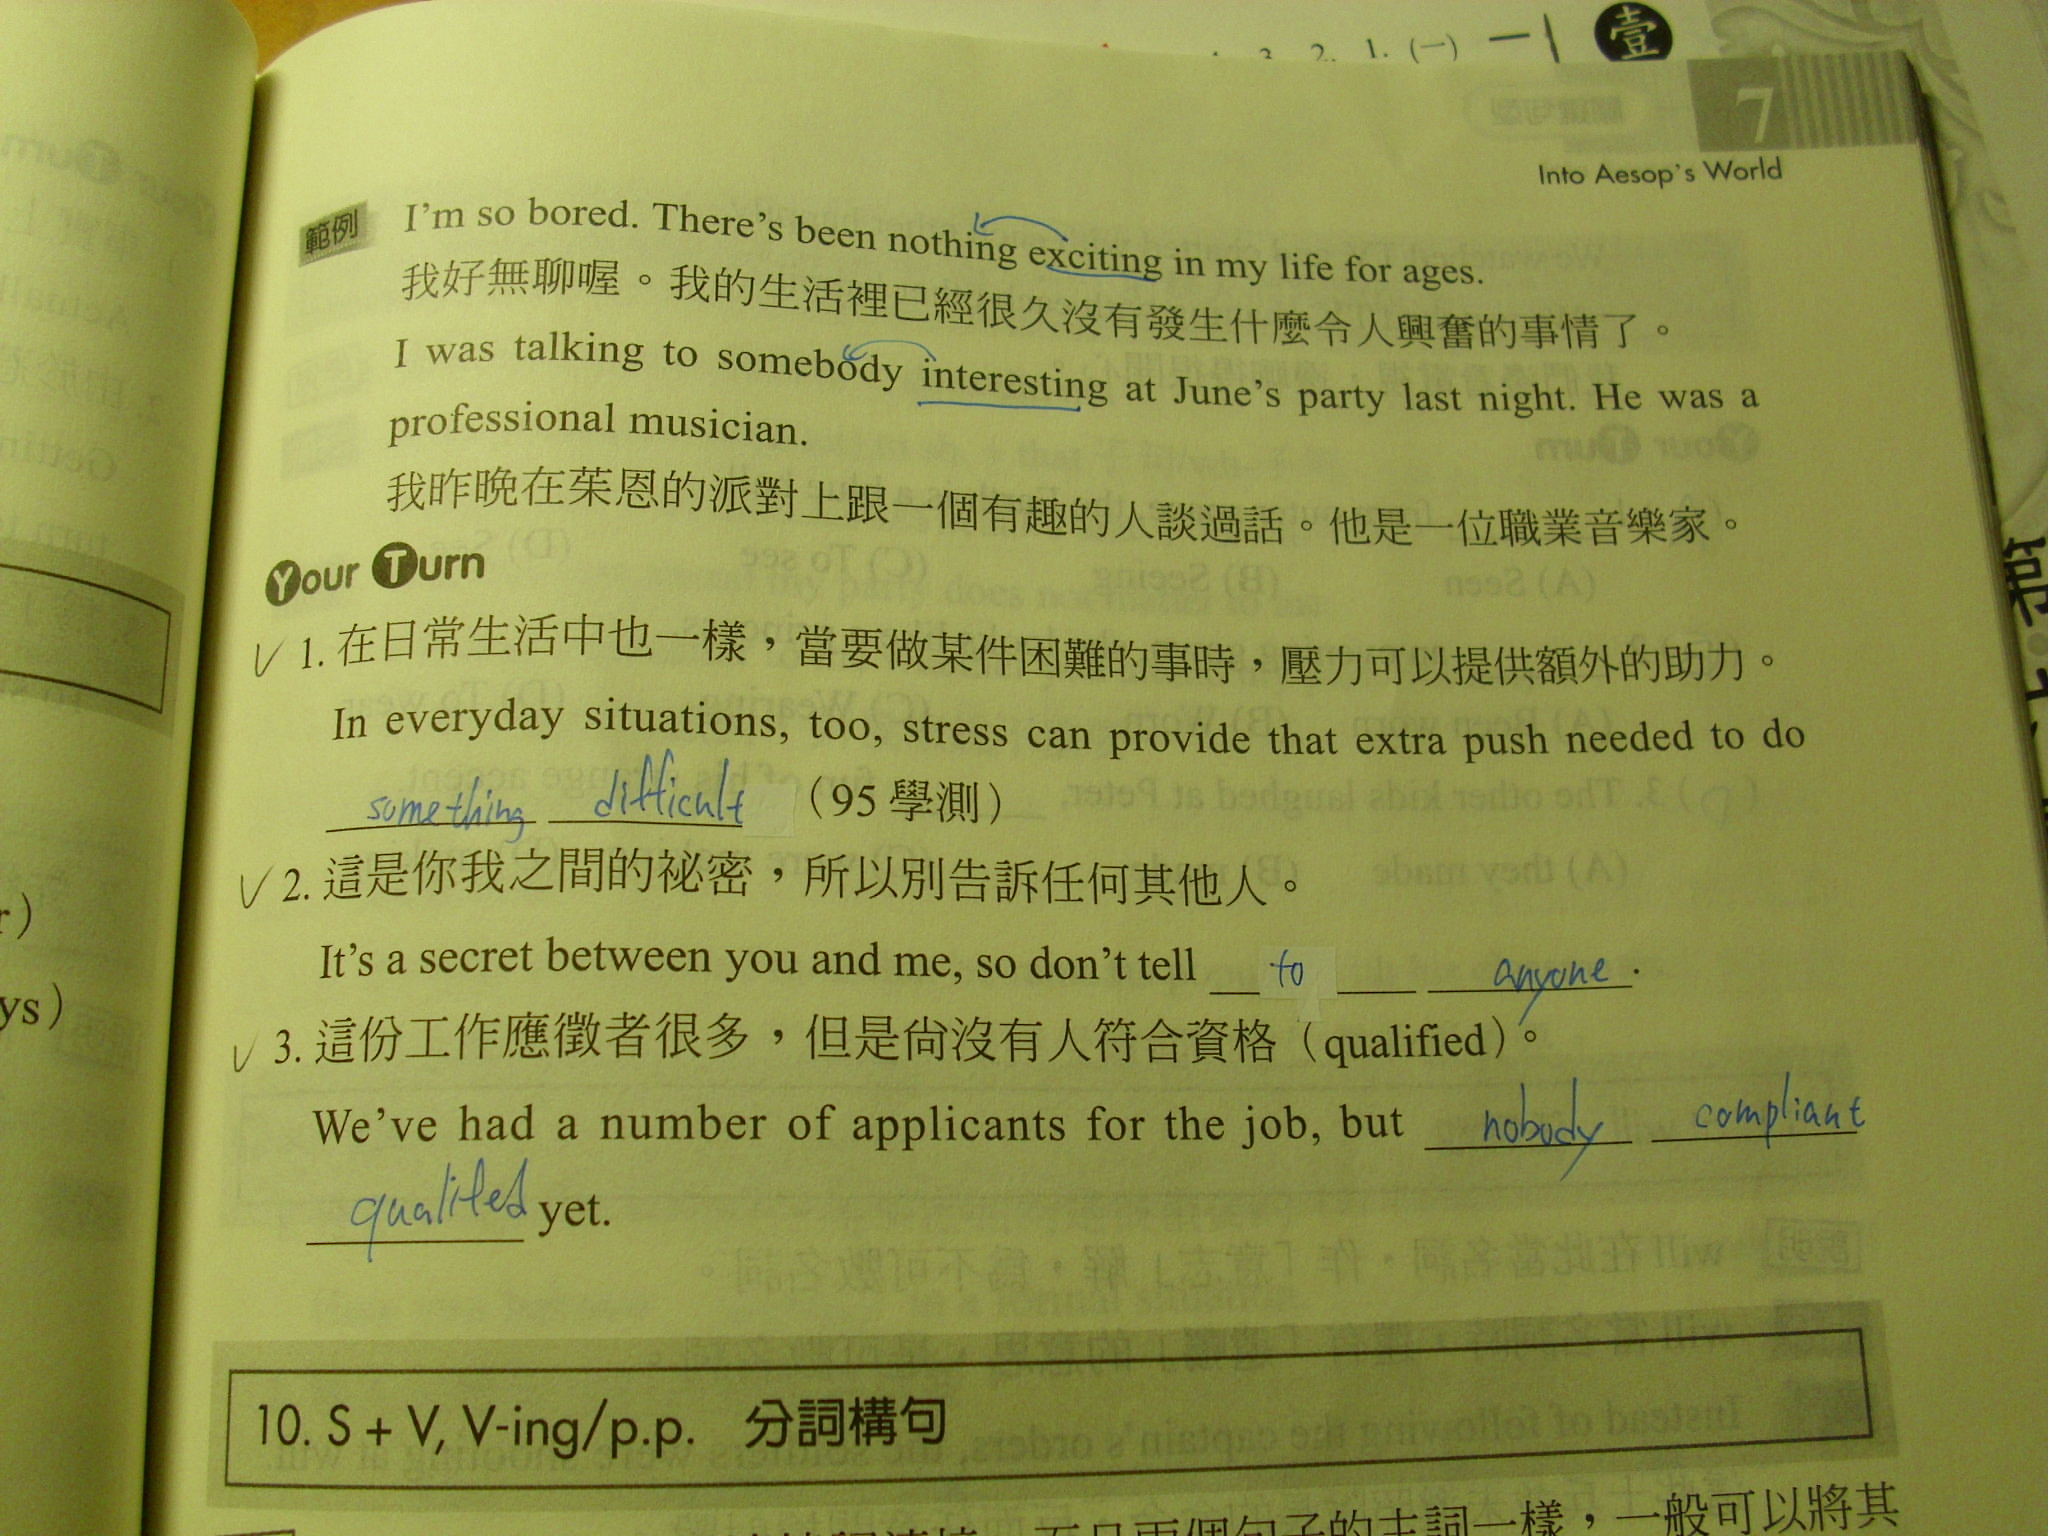 3. 2. 1. (一)
壹
7
Into Aesop's World
範例 I'm so bored. There's been nothing exciting in my life for ages.
我好無聊喔。我的生活裡已經很久沒有發生什麼令人興奮的事情了。
I was talking to somebody interesting at June's party last night. He was a
professional musician.
我昨晚在茱恩的派對上跟一個有趣的人談過話。他是一位職業音樂家。
Your Turn
1. 在日常生活中也一樣，當要做某件困難的事時，壓力可以提供額外的助力。
In everyday situations, too, stress can provide that extra push needed to do
something difficult （95 學測）
2. 這是你我之間的祕密，所以別告訴任何其他人。
It's a secret between you and me, so don't tell to anyone.
3. 這份工作應徵者很多，但是尚沒有人符合資格（qualified）。
We've had a number of applicants for the job, but nobody compliant
qualited yet.
10. S + V, V-ing/p.p. 分詞構句
而且兩個句子的主詞一樣，一般可以將其
r）
ys）